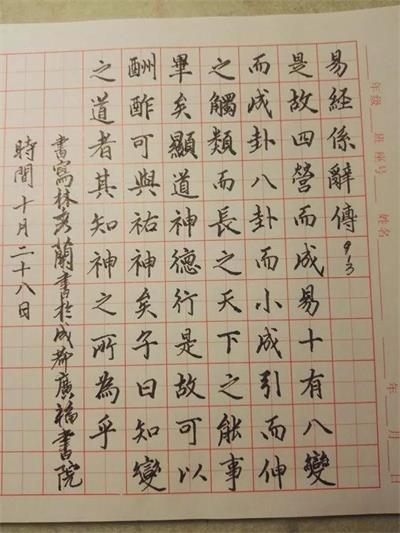 年級 班 座号 姓名 年 月 日
易經係辭傳 9/3
是故四營而成易十有八變
而成卦八卦而小成引而伸
之觸類而長之天下之能事
畢矣顯道神德行是故可以
酬酢可與祐神矣子曰知變
之道者其知神之所為乎
書寫林蘭書於成都廣福書院
時間十月二十八日